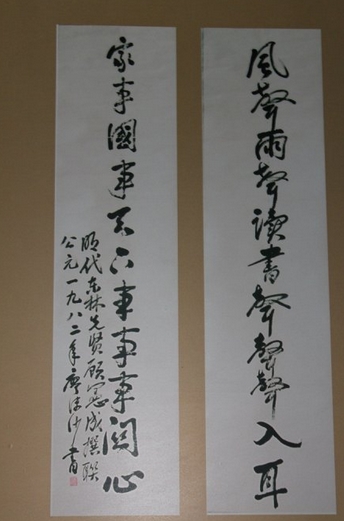 風聲雨聲讀書聲聲聲入耳
家事國事天下事事事関心
明代東林先賢顧憲成撰聯
公元一九八二年廖沫沙書